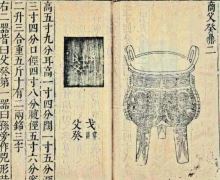 商父癸鼎二
戈
父癸
高五寸九分耳高一寸四分闊一寸
三寸四分口徑四寸八分腹徑五寸六分容
二升三合重五斤十有二兩銘三字
右二器皆曰父癸第一器曰孫旁作兕形